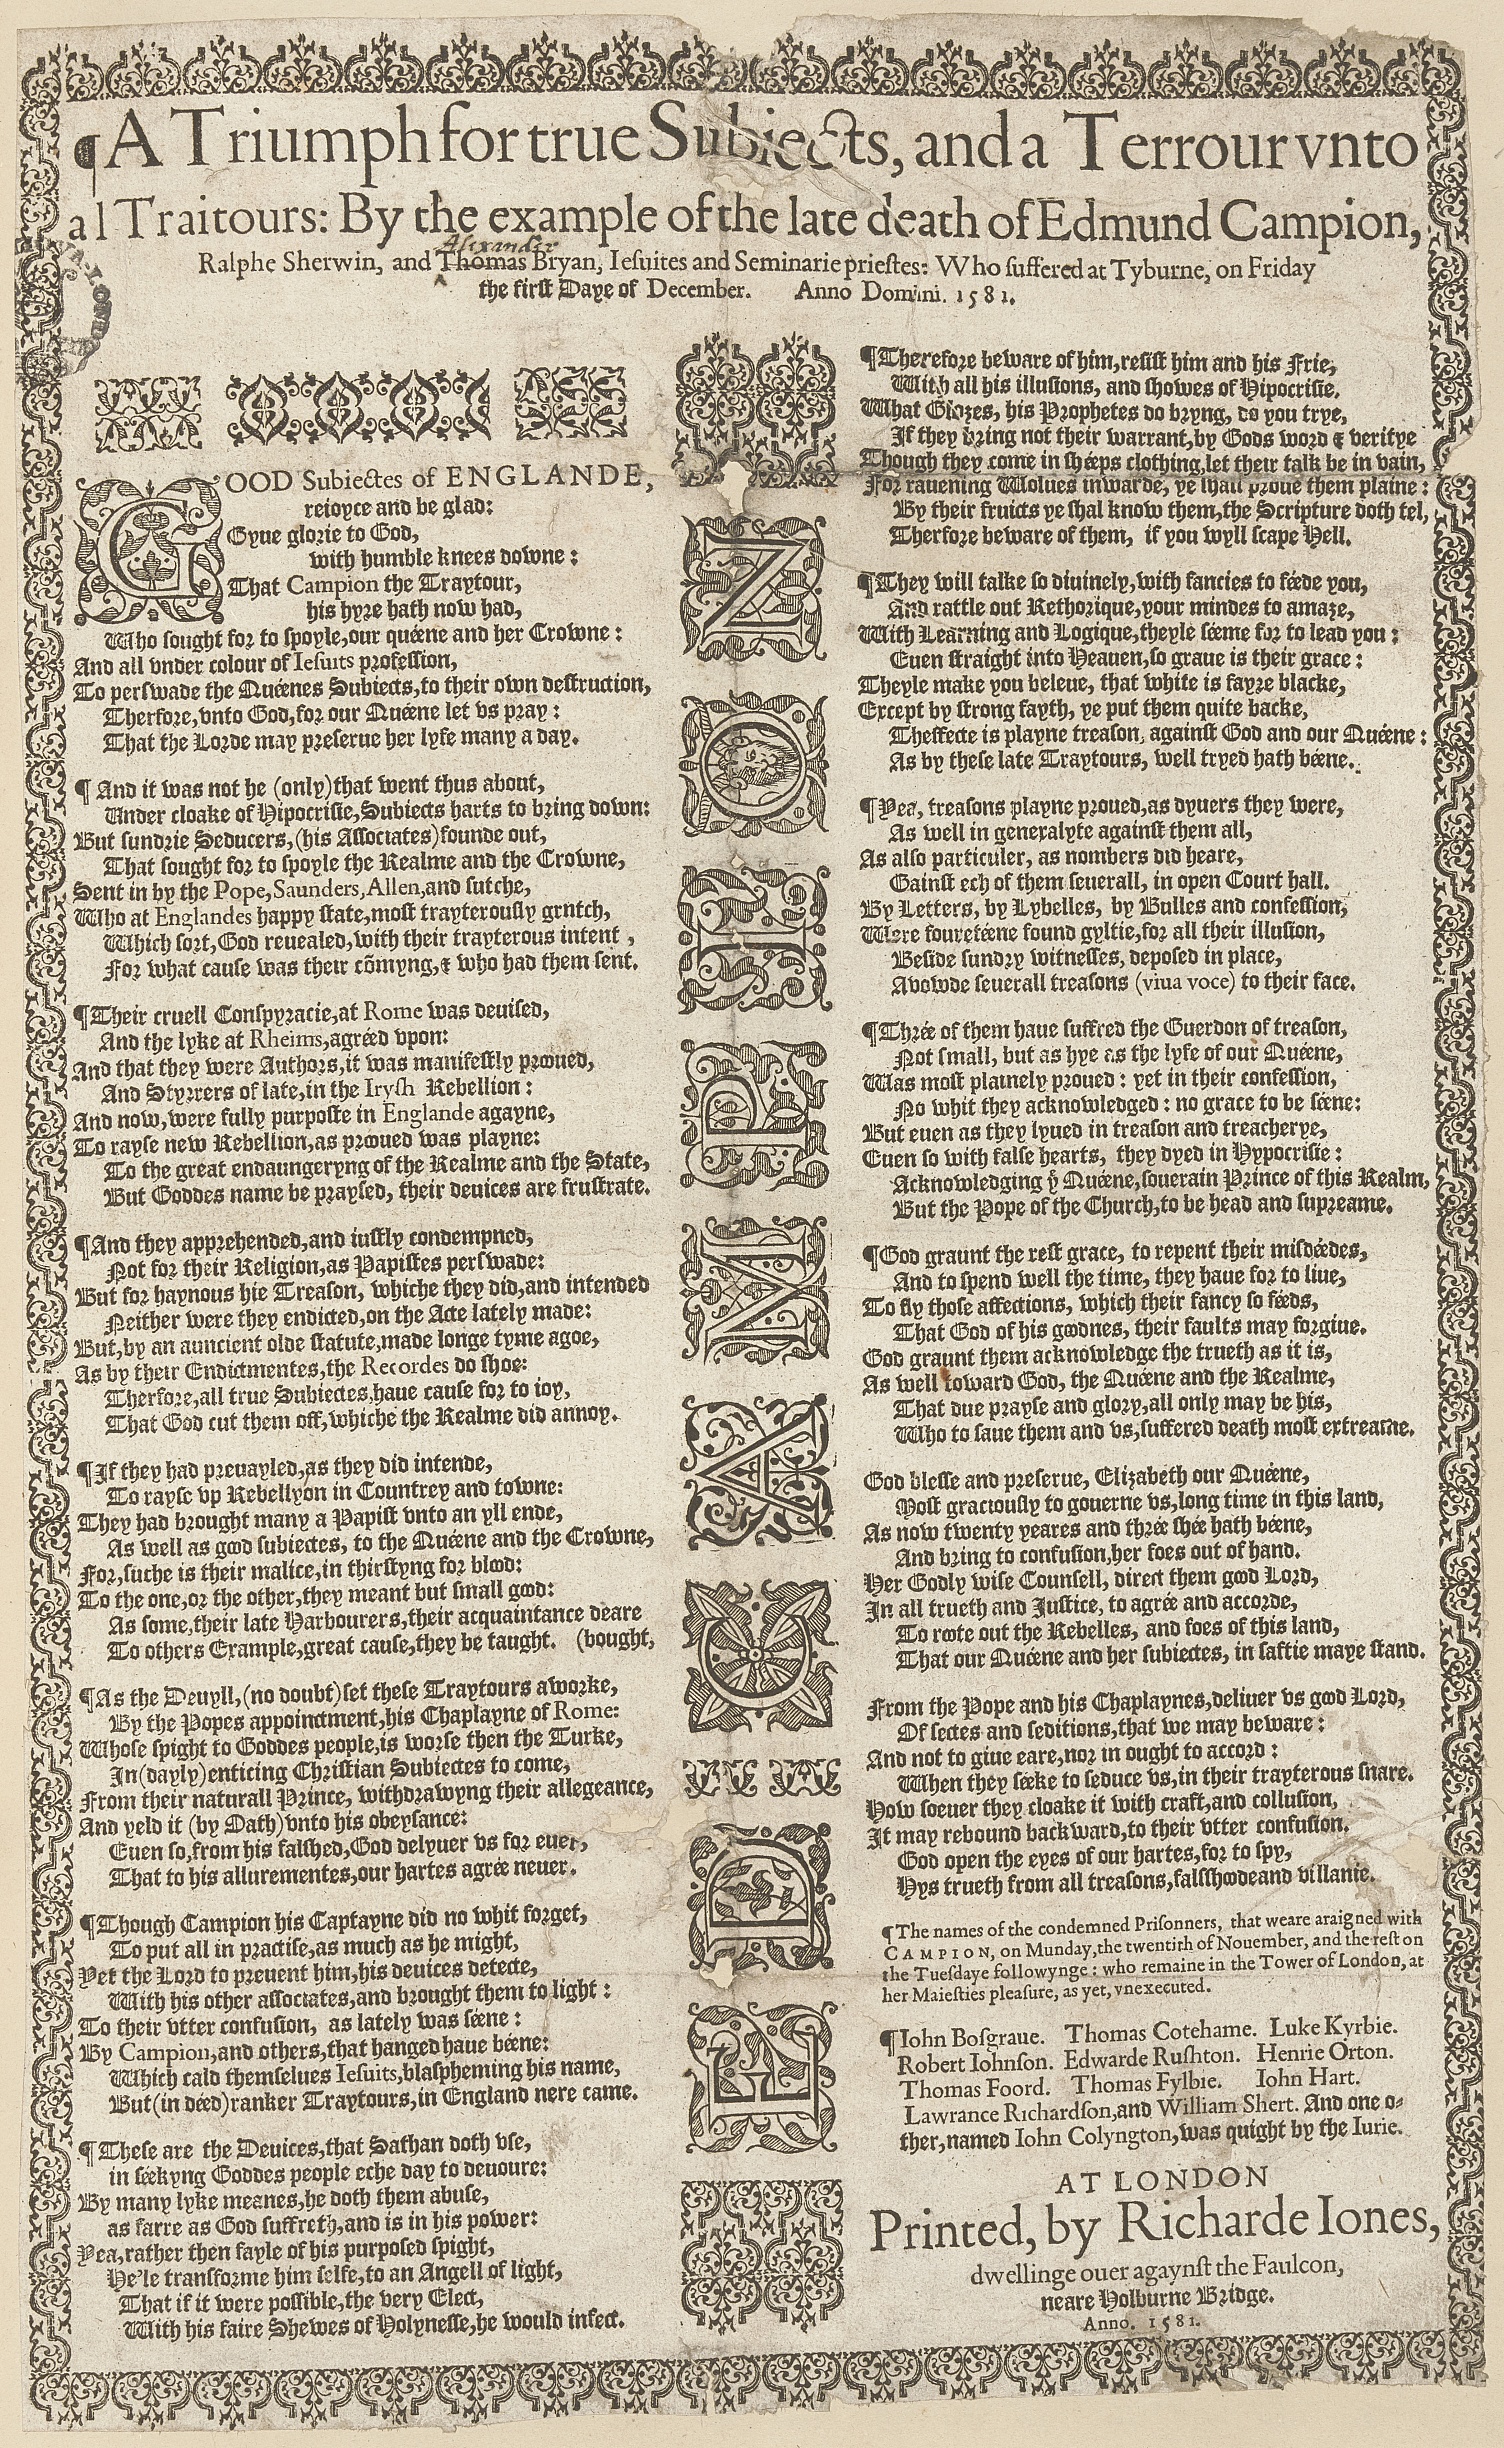 ¶A Triumph for true Subiects, and a Terrour vnto
al Traitours: By the example of the late death of Edmund Campion,
Alexander
Ralphe Sherwin, and Thomas Bryan, Iesuites and Seminarie priestes: Who suffered at Tyburne, on Friday
the first Daye of December. Anno Domini. 1581.
GOOD Subiectes of ENGLANDE,
reioyce and be glad:
Gyue glorie to God,
with humble knees downe:
That Campion the Traytour,
his hyre hath now had,
Who sought for to spoyle, our quéene and her Crowne:
And all vnder colour of Iesuits profession,
To perswade the Quéenes Subiects, to their own destruction,
Therfore, vnto God, for our Quéene let vs pray:
That the Lorde may preserue her lyfe many a day.
¶ And it was not he (only) that went thus about,
Under cloake of Hipocrisie, Subiects harts to bring down:
But sundrie Seducers, (his Associates) founde out,
That sought for to spoyle the Realme and the Crowne,
Sent in by the Pope, Saunders, Allen, and sutche,
Who at Englandes happy state, most trayterously grntch,
Which sort, God reuealed, with their trayterous intent,
For what cause was their cõmyng, & who had them sent.
¶Their cruell Conspyracie, at Rome was deuised,
And the lyke at Rheims, agréed vpon:
And that they were Authors, it was manifestly prooued,
And Styrrers of late, in the Irysh Rebellion:
And now, were fully purposte in Englande agayne,
To rayse new Rebellion, as prooued was playne:
To the great endaungeryng of the Realme and the State,
But Goddes name be praysed, their deuices are frustrate.
¶And they apprehended, and iustly condempned,
Not for their Religion, as Papistes perswade:
But for haynous hie Treason, whiche they did, and intended
Neither were they endicted, on the Acte lately made:
But, by an auncient olde statute, made longe tyme agoe,
As by their Endictmentes, the Recordes do shoe:
Therfore, all true Subiectes, haue cause for to ioy,
That God cut them off, whiche the Realme did annoy.
¶If they had preuayled, as they did intende,
To rayse vp Rebellyon in Countrey and towne:
They had brought many a Papist vnto an yll ende,
As well as good subiectes, to the Quéene and the Crowne,
For, suche is their malice, in thirstyng for blood:
To the one, or the other, they meant but small good:
As some, their late Harbourers, their acquaintance deare
To others Example, great cause, they be taught. (bought,
¶As the Deuyll, (no doubt) set these Traytours aworke,
By the Popes appoinctment, his Chaplayne of Rome:
Whose spight to Goddes people, is worse then the Turke,
In (dayly) enticing Christian Subiectes to come,
From their naturall Prince, withdrawyng their allegeance,
And yeld it (by Oath) vnto his obeysance:
Euen so, from his falshed, God delyuer vs for euer,
That to his allurementes, our hartes agrée neuer.
¶Though Campion his Captayne did no whit forget,
To put all in practise, as much as he might,
Yet the Lord to preuent him, his deuices detecte,
With his other associates, and brought them to light:
To their vtter confusion, as lately was séene:
By Campion, and others, that hanged haue béene:
Which cald themselues Iesuits, blaspheming his name,
But (in déed) ranker Traytours, in England nere came.
¶These are the Deuices, that Sathan doth vse,
in séekyng Goddes people eche day to deuoure:
By many lyke meanes, he doth them abuse,
as farre as God suffreth, and is in his power:
Yea, rather then fayle of his purposed spight,
He'le transforme him selfe, to an Angell of light,
That if it were possible, the very Elect,
With his faire Shewes of Holynesse, he would infect.
ED CAMPION
¶Therefore beware of him, resist him and his Frie,
With all his illusions, and showes of Hipocrisie.
What Glozes, his Prophetes do bryng, do you trye,
If they bring not their warrant, by Gods word & veritye
Though they come in shéeps clothing, let their talk be in vain,
For rauening Wolues inwarde, ye shall proue them plaine:
By their fruicts ye shal know them, the Scripture doth tel,
Therfore beware of them, if you wyll scape Hell.
¶They will talke so diuinely, with fancies to féede you,
And rattle out Rethorique, your mindes to amaze,
With Learning and Logique, theyle séeme for to lead you:
Euen straight into Heauen, so graue is their grace:
Theyle make you beleue, that white is fayre blacke,
Except by strong fayth, ye put them quite backe,
Theffecte is playne treason, against God and our Quéene:
As by these late Traytours, well tryed hath béene.
¶Yea, treasons playne proued, as dyuers they were,
As well in generalyte against them all,
As also particuler, as nombers did heare,
Gainst ech of them seuerall, in open Court hall.
By Letters, by Lybelles, by Bulles and confession,
Were fouretéene found gyltie, for all their illusion,
Beside sundry witnesses, deposed in place,
Avowde seuerall treasons (viua voce) to their face.
¶Thrée of them haue suffred the Guerdon of treason,
Not small, but as hye as the lyfe of our Quéene,
Was most plainely proued: yet in their confession,
No whit they acknowledged: no grace to be séene:
But euen as they lyued in treason and treacherye,
Euen so with false hearts, they dyed in Hypocrisie:
Acknowledging ye Quéene, souerain Prince of this Realm,
But the Pope of the Church, to be head and supreame.
¶God graunt the rest grace, to repent their misdéedes,
And to spend well the time, they haue for to liue,
To fly those affections, which their fancy so féeds,
That God of his goodnes, their faults may forgiue.
God graunt them acknowledge the trueth as it is,
As well toward God, the Quéene and the Realme,
That due prayse and glory, all only may be his,
Who to saue them and vs, suffered death most extreame.
God blesse and preserue, Elizabeth our Quéene,
Most graciously to gouerne vs, long time in this land,
As now twenty yeares and thrée shée hath béene,
And bring to confusion, her foes out of hand.
Her Godly wise Counsell, direct them good Lord,
In all trueth and Justice, to agrée and accorde,
To roote out the Rebelles, and foes of this land,
That our Quéene and her subiectes, in saftie maye stand.
From the Pope and his Chaplaynes, deliuer vs good Lord,
Of sectes and seditions, that we may beware:
And not to giue eare, nor in ought to accord:
When they séeke to seduce vs, in their trayterous snare.
How soeuer they cloake it with craft, and collusion,
It may rebound backward, to their vtter confusion.
God open the eyes of our hartes, for to spy,
Hys trueth from all treasons, falsshoodeand villanie.
¶The names of the condemned Prisonners, that weare araigned with
CAMPION, on Munday, the twentith of Nouember, and the rest on
the Tuesdaye followynge: who remaine in the Tower of London, at
her Maiesties pleasure, as yet, vnexecuted.
¶Iohn Bosgraue. Thomas Cotehame. Luke Kyrbie.
Robert Iohnson. Edwarde Rushton. Henrie Orton.
Thomas Foord. Thomas Fylbie. Iohn Hart.
Lawrance Richardson, and William Shert. And one o-
ther, named Iohn Colyngton, was quight by the Iurie.
AT LONDON
Printed, by Richarde Iones,
dwellinge ouer agaynst the Faulcon,
neare Holburne Bridge.
Anno. 1581.